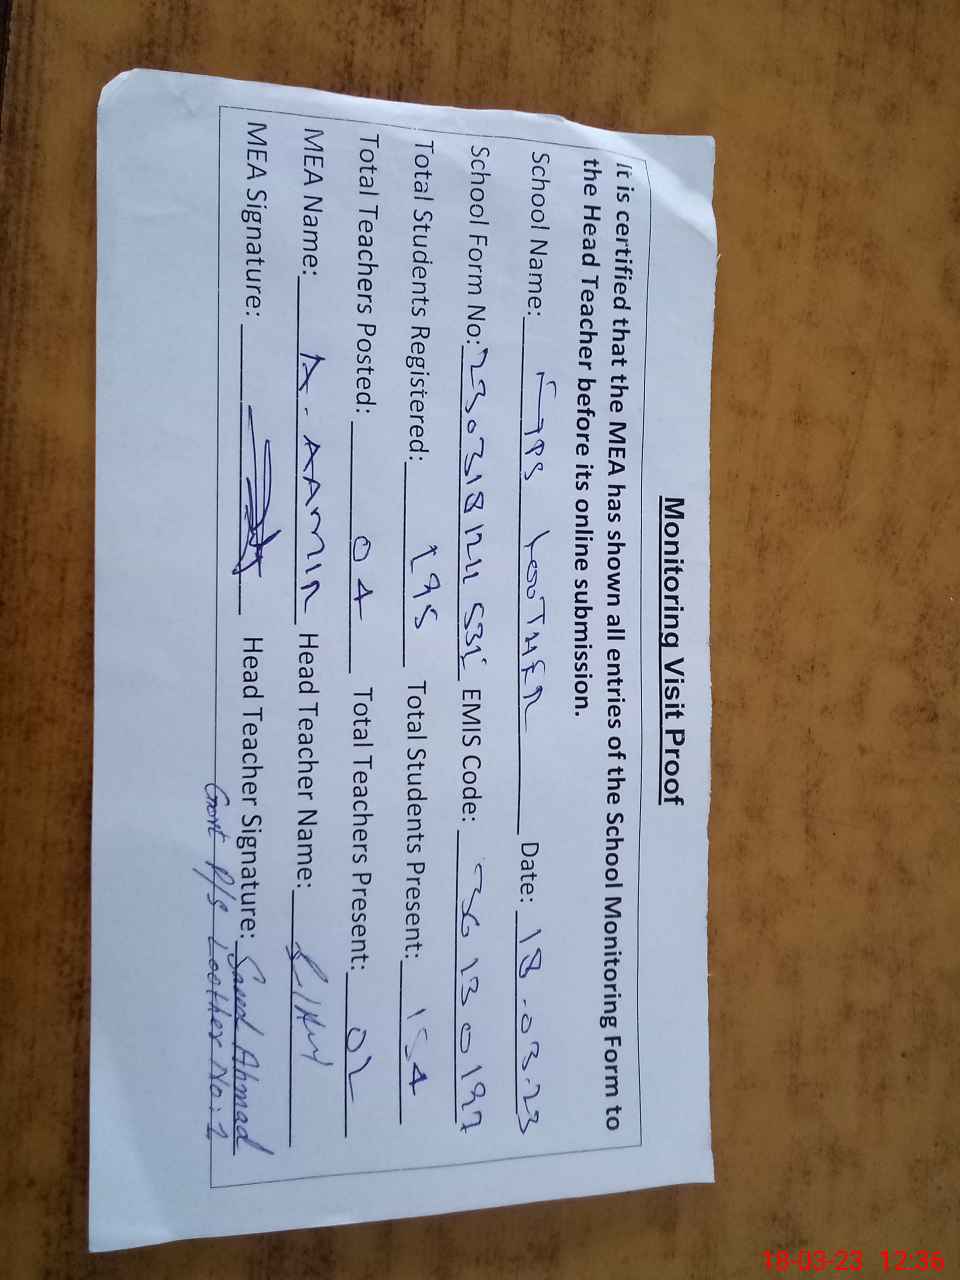 Monitoring Visit Proof
It is certified that the MEA has shown all entries of the School Monitoring Form to
the Head Teacher before its online submission.
School Name: GPS LOOTHER Date: 18.03.23
School Form No: EMIS Code:
Total Students Registered: 195 Total Students Present: 154
Total Teachers Posted: 04 Total Teachers Present: 02
MEA Name: Head Teacher Name:
MEA Signature: Head Teacher Signature: Saeed Ahmad
Govt P/S Loother No: 1
18-03-23 12:36